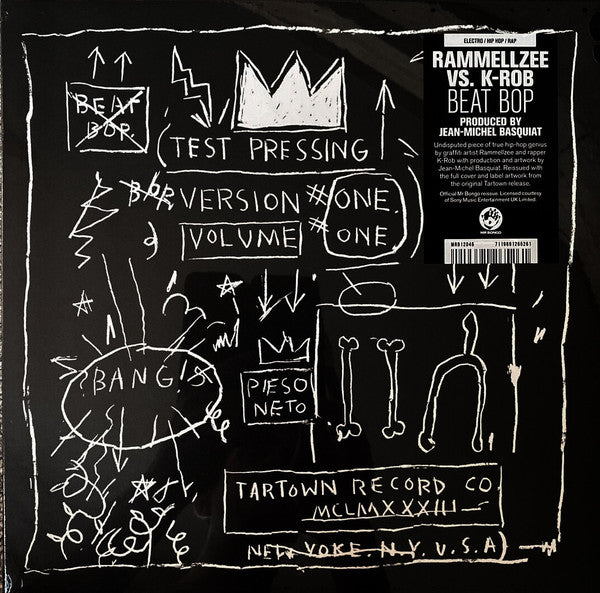 BEAT
BOP
(TEST PRESSING)
BOP VERSION #ONE.
VOLUME # ONE.
BANG!
PIESO
NETO
TARTOWN RECORD CO.
MCLMXXXIII
NEW YOKE. N.Y. U.S.A)
ELECTRO / HIP HOP / RAP
RAMMELLZEE
VS. K-ROB
BEAT BOP
PRODUCED BY
JEAN-MICHEL BASQUIAT
Undisputed piece of true hip-hop genius
by graffiti artist Rammellzee and rapper
K-Rob with production and artwork by
Jean-Michel Basquiat. Reissued with
the full cover and label artwork from
the original Tartown release.
Official Mr Bongo reissue. Licensed courtesy
of Sony Music Entertainment UK Limited.
MR BONGO
MRB12046